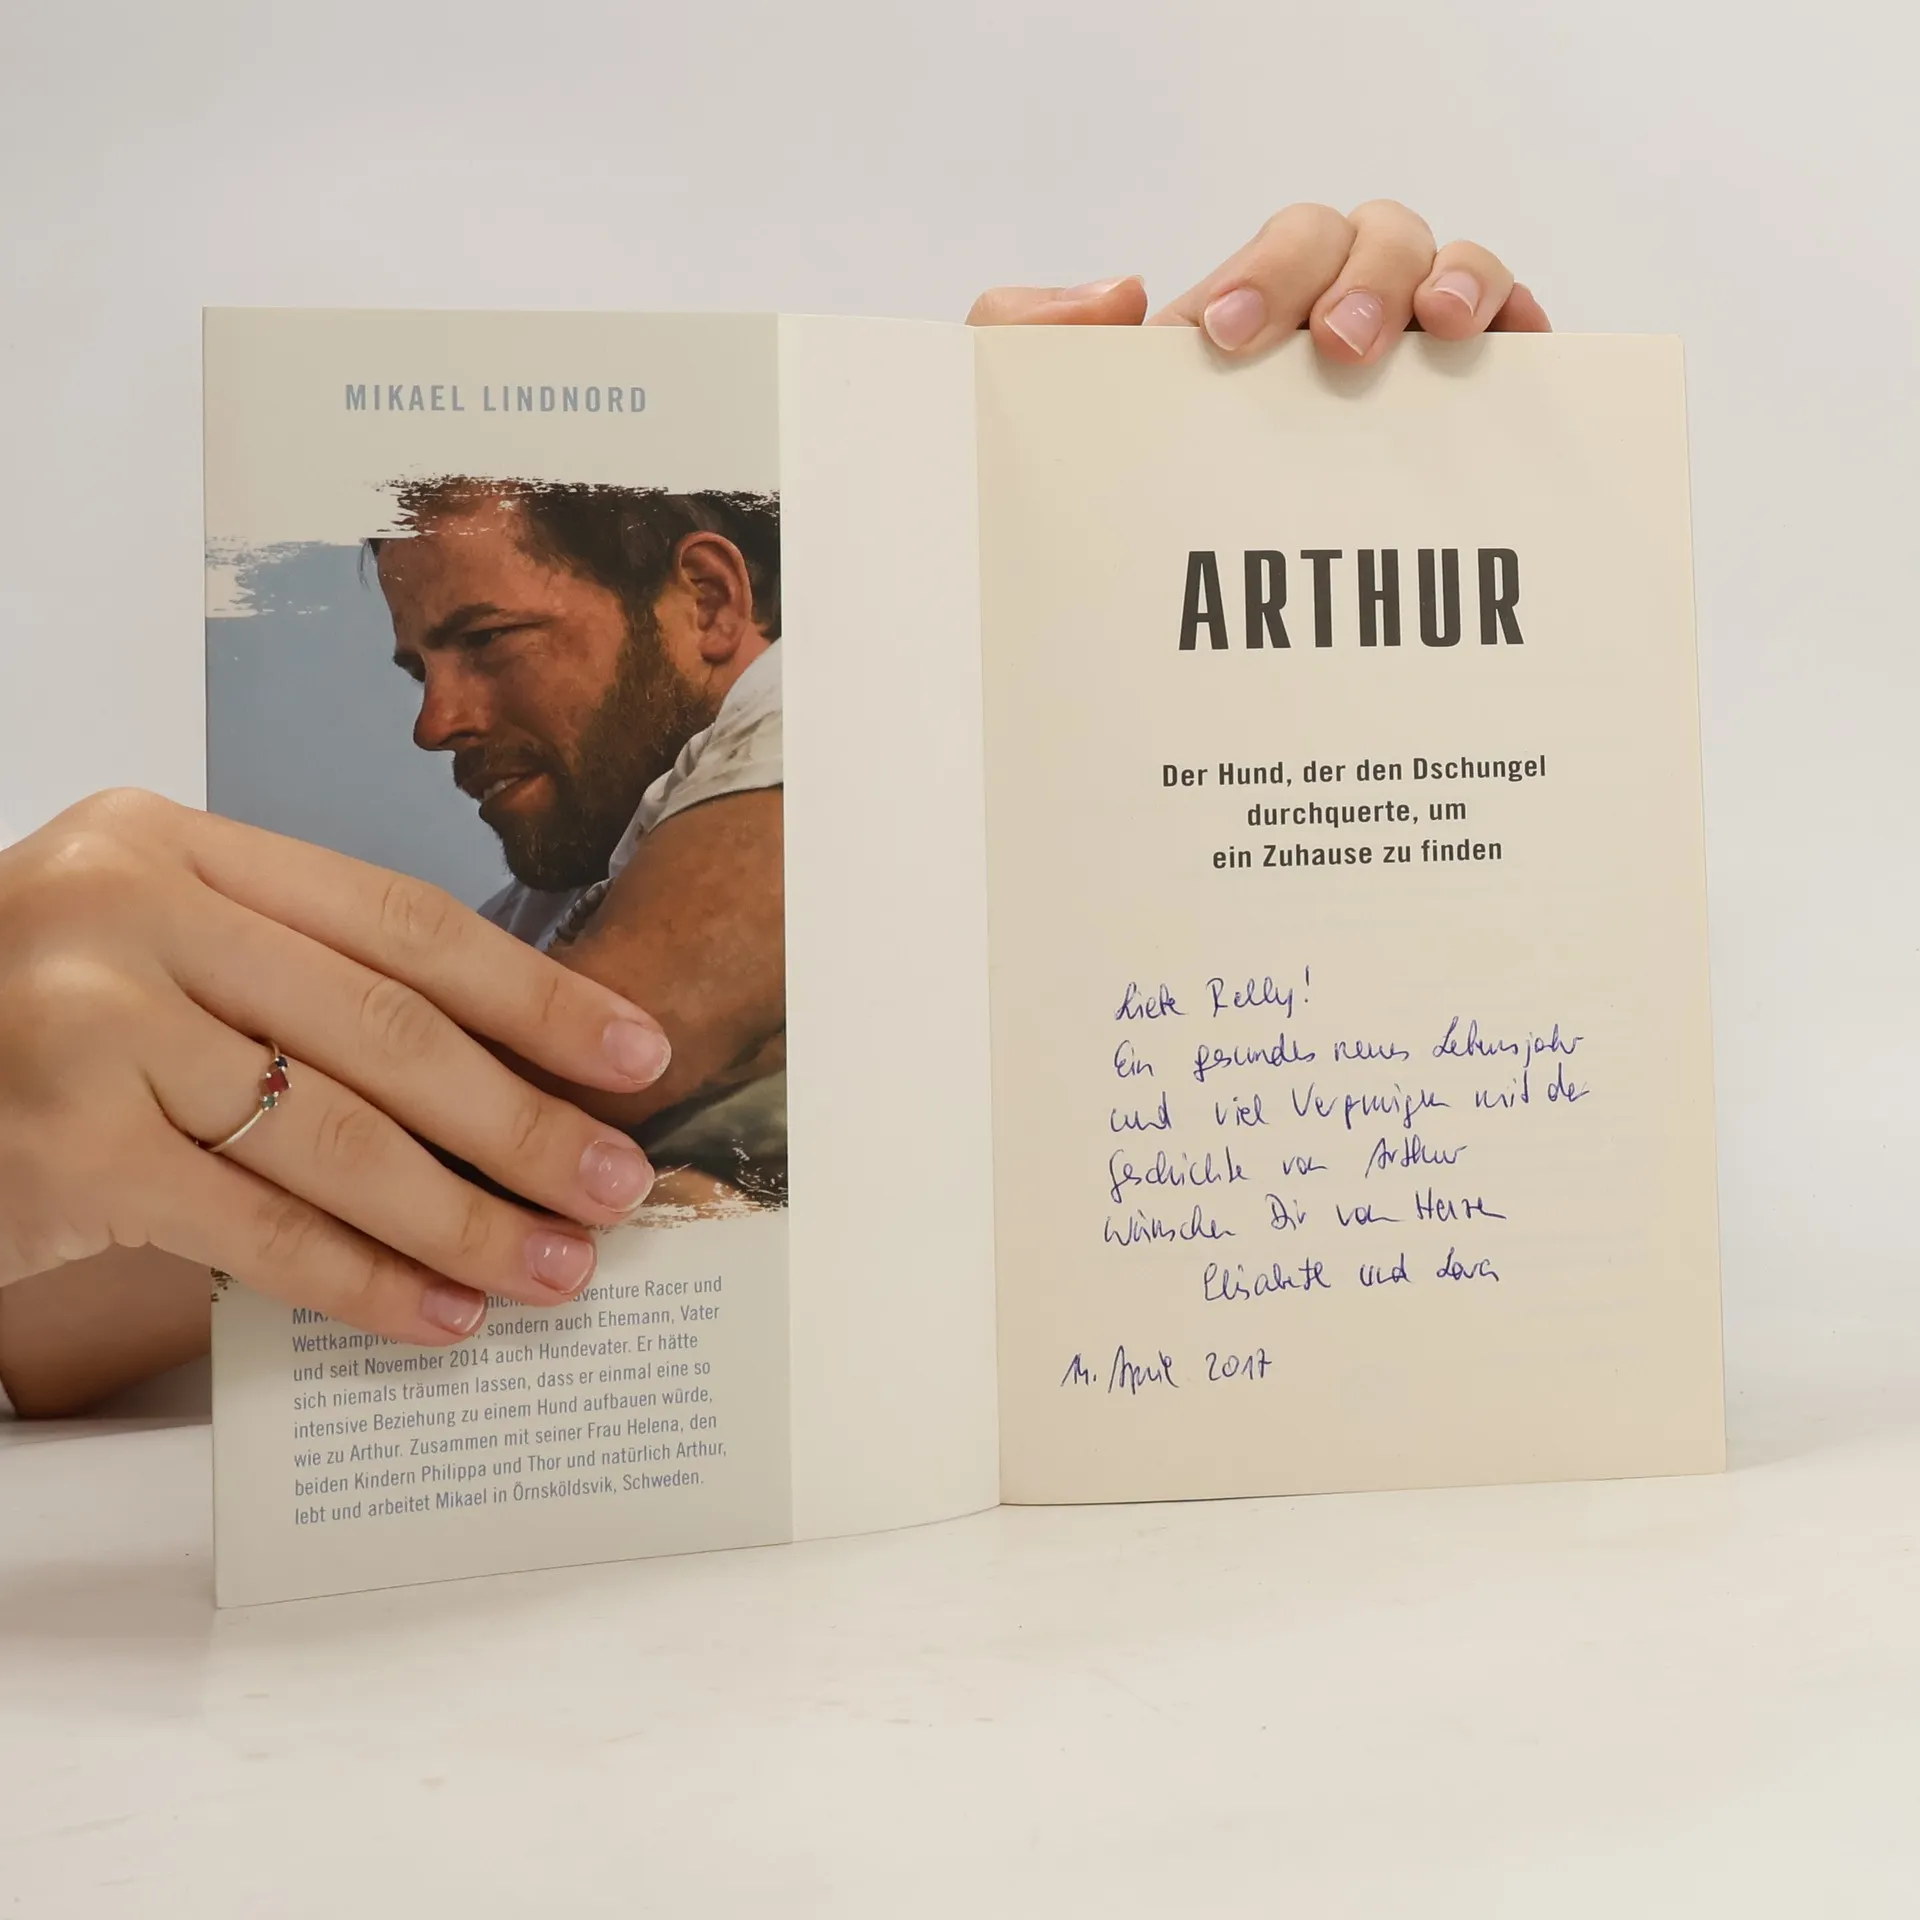 MIKAEL LINDNORD
venture Racer und
sondern auch Ehemann, Vater
und seit November 2014 auch Hundevater. Er hätte
sich niemals träumen lassen, dass er einmal eine so
intensive Beziehung zu einem Hund aufbauen würde,
wie zu Arthur. Zusammen mit seiner Frau Helena, den
beiden Kindern Philippa und Thor und natürlich Arthur,
lebt und arbeitet Mikael in Örnsköldsvik, Schweden.
ARTHUR
Der Hund, der den Dschungel
durchquerte, um
ein Zuhause zu finden
Liebe Relly!
Ein gesundes neues Lebensjahr
und viel Vergnügen mit der
Geschichte von Arthur
wünschen Dir von Herzen
Elisabeth und
April 2017